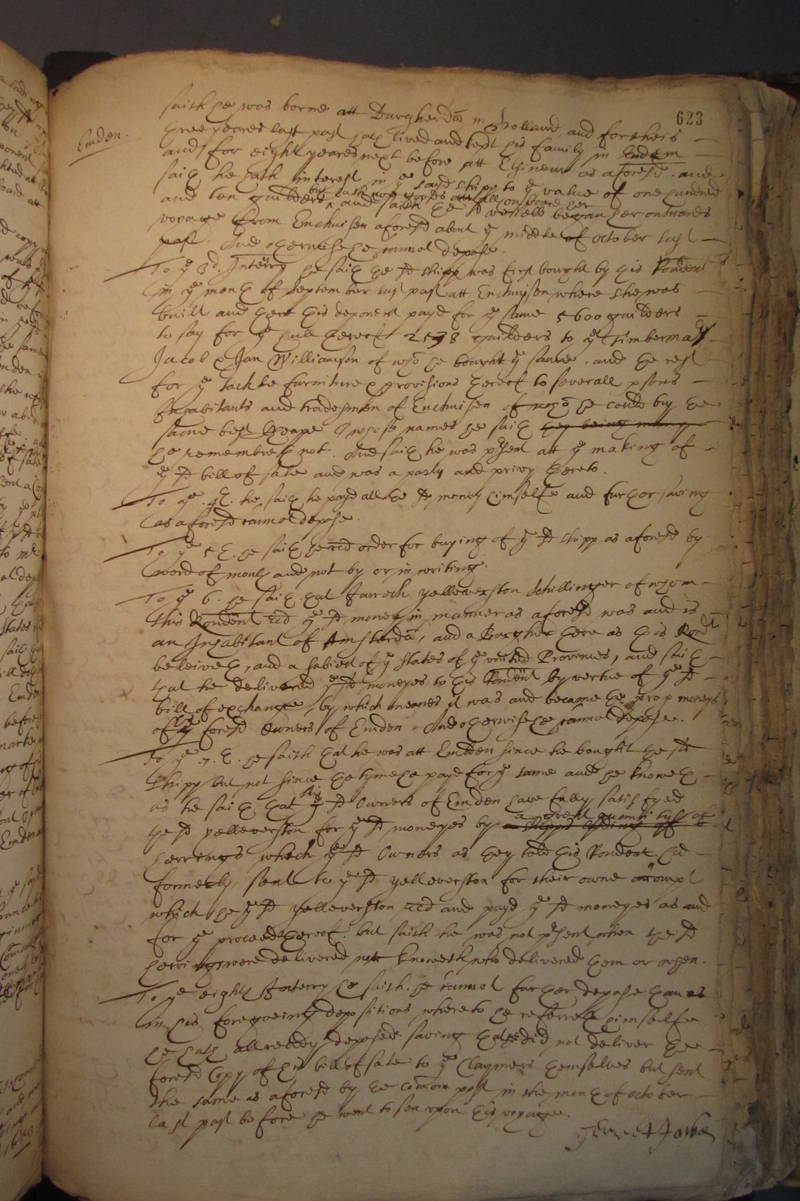 623
saith he was borne att Dargherdam in Holland and for theis
Emden.
three yeares last past hath lived and kept his family in Emden
and for eight yeares next before att as aforesd. and
saith he hath interest in ye sayd shipp to ye value of one hundred
and ten guilders but hath noe goods on board her
and saith the sd vessell began her outwards
voyage from Enchuisen aforesd about ye middle of October last
past. And otherwise he cannot depose.
To ye 3d. Interry he saith the sd shipp was first bought by this Rondent
in ye month of September last past att Enchuisen where she was
built and that this deponent payd for ye same 5600 guilders
to say for ye hull thereof 2578 guilders to ye Timberman
Jacob & Jan Williamson of whom he bought ye same. and the rest
for ye tackle furniture & provisions thereof to severall psons
Inhabitants and tradesmen of Enchuisen of whom he could buy the
same best cheape whose names he saith they being many
he remembreth not. And saith he was psent att ye making of
ye sd bill of sale and was a party and privy thereto.
To ye 4th. he saith he payd all the sd money himselfe and further saving
as aforesd cannot depose.
To ye 5th. he saith he recd order for buying of ye sd shipp as aforesd by
word of mouth and not by or in writing.
To ye 6. he saith that Yelleverston Schellinger of whom
this Rondent recd ye sd money in manner as aforesd was and is
an Inhabitant of Amsterdam, and a Burgher there as this Rondt
beleiveth, and a subiect of ye States of ye united Provinces, and saith
that he delivered ye sd moneyes to this Rondent by vertue of ye sd
bill of exchange by which meanes it was and became the prop moneys
of ye foresd Owners of Emden. And otherwise he cannot depose.
To ye .7.th. he saith that he was att Embden since he bought the sd
shipp but not since the tyme he payd for ye same and he knoweth
as he saith that ye sd Owners of Emden have fully satisfyed
the sd Yelleverston for ye sd moneyes by a great quantity of
herrings which ye sd Owners as they told this Rondent had
formerly sent to ye sd Yelleverston for their owne accompt
which he ye sd Yelleverston recd and payd ye sd moneyes as and
for ye proceed thereof. but saith he was not psent when the sd
herrings were delivered nor knoweth who delivered them or when.
To ye eighth Interry he saith he cannot further depose than as
in his foregoeing depositions whereto he referreth himselfe
he hath allready deposed. saving that he did not deliver the
foresd Copy of his bill of sale to ye Claymers themselves but sent
the same as aforesd by the comon post in the month of October
last past before he went to sea upon his voyage.